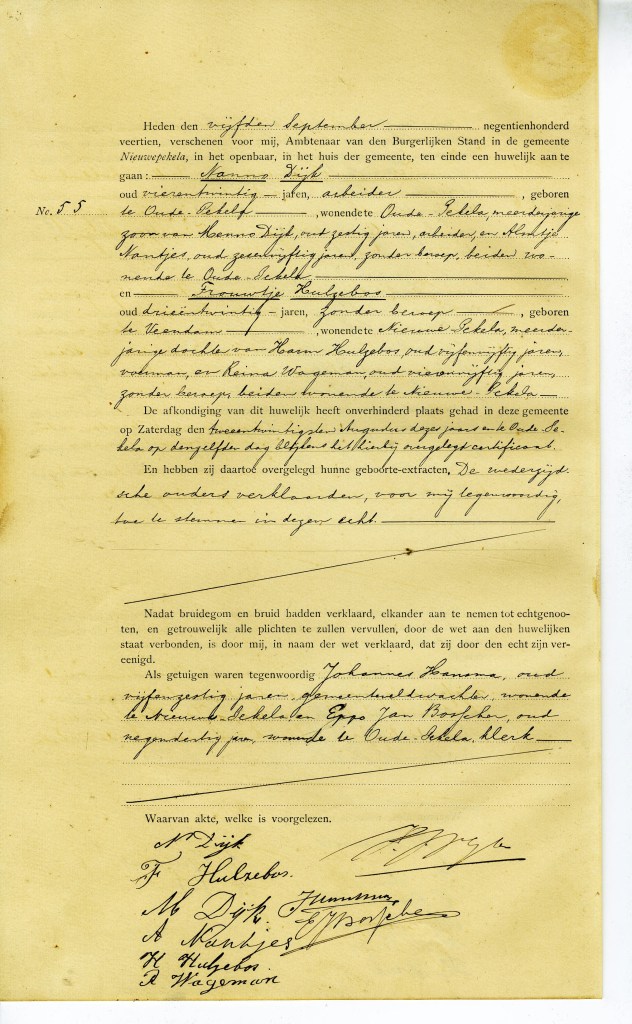 Heden den vijfden September negentienhonderd
veertien, verschenen voor mij, Ambtenaar van den Burgerlijken Stand in de gemeente
Nieuwepekela, in het openbaar, in het huis der gemeente, ten einde een huwelijk aan te
gaan: Nanno Dijk
oud vierentwintig jaren, arbeider, geboren
No. 55
te Oude-Pekela, wonende te Oude-Pekela, meerderjarige
zoon van Menno Dijk, oud zestig jaren, arbeider, en Altje
Nantjes, oud zesenvijftig jaren, zonder beroep, beiden wo-
nende te Oude-Pekela
en Frouwtje Hulzebos
oud drieëntwintig jaren, zonder beroep, geboren
te Veendam, wonende te Nieuwe-Pekela, meerder-
jarige dochter van Harm Hulzebos, oud vijfenvijftig jaren,
voerman, en Reina Wageman, oud vierenvijftig jaren,
zonder beroep, beiden wonende te Nieuwe-Pekela
De afkondiging van dit huwelijk heeft onverhinderd plaats gehad in deze gemeente
op Zaterdag den tweeentwintigsten Augustus dezes jaars en te Oude-Pe-
kela op denzelfden dag blijkens het hierbij overgelegd certificaat.
En hebben zij daartoe overgelegd hunne geboorte-extracten. De wederzijd-
sche ouders verklaarden, voor mij tegenwoordig,
toe te stemmen in dezen echt.
Nadat bruidegom en bruid hadden verklaard, elkander aan te nemen tot echtgenoo-
ten, en getrouwelijk alle plichten te zullen vervullen, door de wet aan den huwelijken
staat verbonden, is door mij, in naam der wet verklaard, dat zij door den echt zijn ver-
eenigd.
Als getuigen waren tegenwoordig Johannes Hansma, oud
vijfenzestig jaren, gemeenteveldwachter, wonende
te Nieuwe-Pekela en Eppo Jan Bosscher, oud
negendertig jaren, wonende te Oude-Pekela, klerk
Waarvan akte, welke is voorgelezen.
N Dijk
F Hulzebos.
M Dijk
EJBosscher
A Nantjes
H Hulzebos
R Wageman